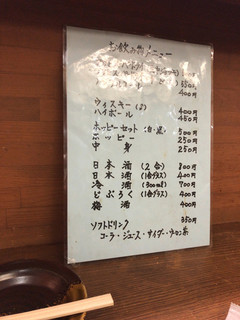 お飲み物メニュー
550円
400円
ウィスキー(S) 400円
ハイボール 450円
ホッピーセット(白・黒) 500円
ホッピー 250円
中身 250円
日本酒(2合) 800円
日本酒(1合グラス) 400円
冷酒(300ml) 700円
どぶろく(1合グラス) 400円
梅酒 400円
ソフトドリンク 350円
コーラ・ジュース・サイダー・ウーロン茶